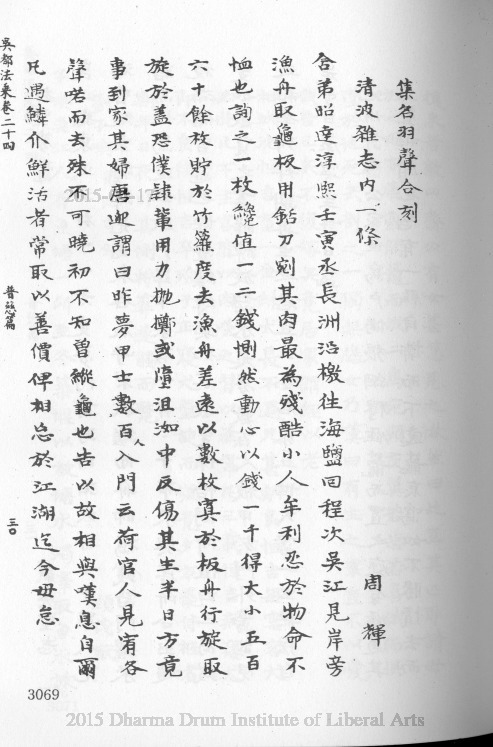 集名羽聲合刻
清波雜志內一條
周輝
合弟昭達淳熙壬寅丞長洲沿檄往海鹽回程次吳江見岸旁
漁舟取龜板用鈷刀剜其肉最為殘酷小人牟利忍於物命不
恤也詢之一枚纔值一二錢惻然動心以錢一千得大小五百
六十餘枚貯於竹簰度去漁舟差遠以數枚寘於板舟行旋取
旋放蓋恐僕隸輩用力拋擲或墮沮洳中反傷其生半日方竟
事到家其婦唐迎謂曰昨夢甲士數百人入門云荷官人見宥各
聲喏而去殊不可曉初不知曾縱龜也告以故相與嘆息自爾
凡遇鱗介鮮活者常取以善價俾相忘於江湖迄今毋怠
吳都法乘卷二十四
普慈篇
三〇
3069
2015-04-17
2015 Dharma Drum Institute of Liberal Arts